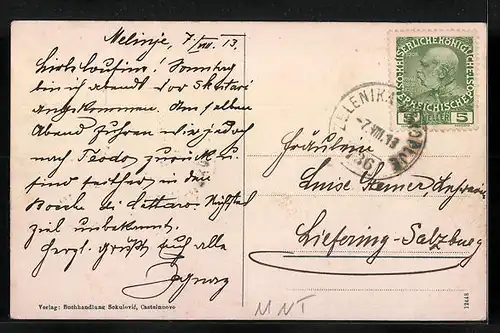 Melinje, 7/VIII. 13.
Liebe Cousine! Sonntag
bin ich abends vor Skutari
angekommen. Am selben
Abend fuhren wir jedoch
nach Teodo zurück u.
sind seither in der
Bocche di Cattaro. Nächstes
Ziel unbekannt.
Herzl. Grüße Euch alle
Ignaz
Verlag: Buchhandlung Sokulović, Castelnuovo
KAISERLICHE KÖNIGLICHE
ÖSTERREICHISCHE POST
5 HELLER 5
ZELENIKA
7.VIII.13
Fräulein
Luise
Liefering-Salzburg
MNT